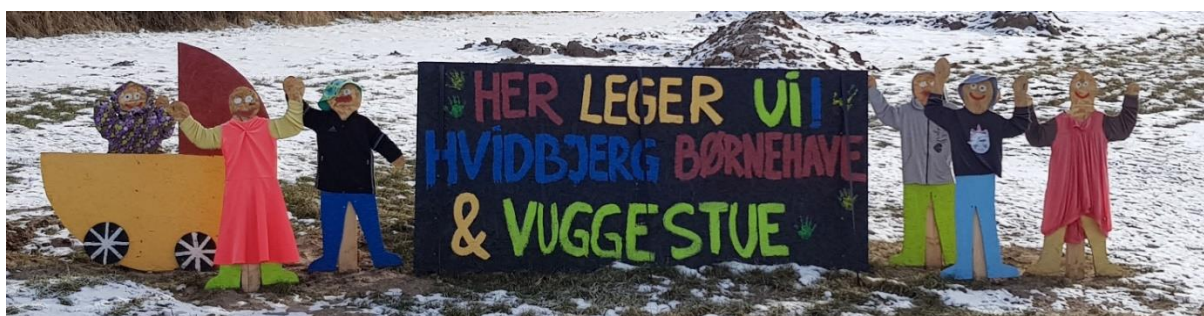 HER LEGER Vi!
HViDBJERG BØRNEHAVE
& VUGGESTUE